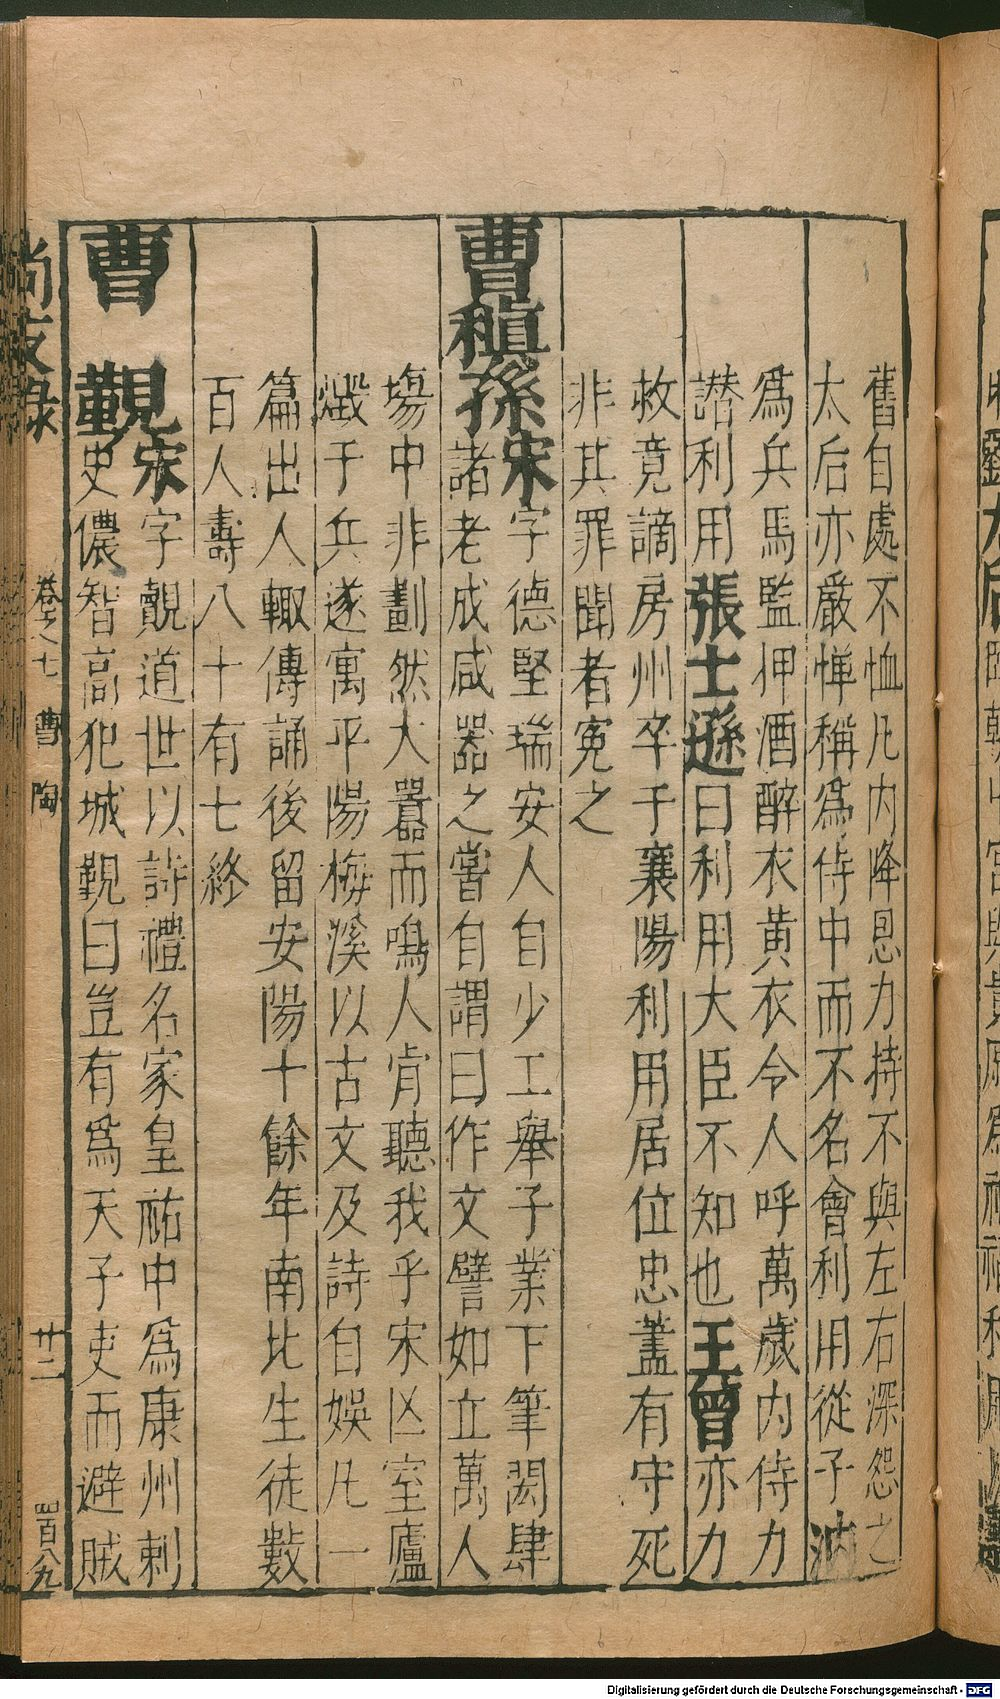 舊自處不恤凡內降恩力持不與左右深怨之
太后亦嚴憚稱爲侍中而不名會利用從子汭
爲兵馬監押酒醉衣黃衣令人呼萬歲内侍力
譛利用張士遜曰利用大臣不知也王曾亦力
救竟謫房州卒于襄陽利用居位忠藎有守死
非其罪聞者寃之
曹稹孫宋字德堅瑞安人自少工舉子業下筆閎肆
諸老成咸器之嘗自謂曰作文譬如立萬人
塲中非劃然大嚣而鳴人肯聽我乎宋区室廬
燬于兵遂寓平陽梅溪以古文及詩自娛凡一
篇出人輙傳誦後留安陽十餘年南北生徒數
百人壽八十有七終
曹覲宋字覿道世以詩禮名家皇祐中爲康州刺
史儂智高犯城覲曰豈有爲天子吏而避賊
尚友錄
卷之七 曹 陶
廿二
四百八九
Digitalisierung gefördert durch die Deutsche Forschungsgemeinschaft - DFG